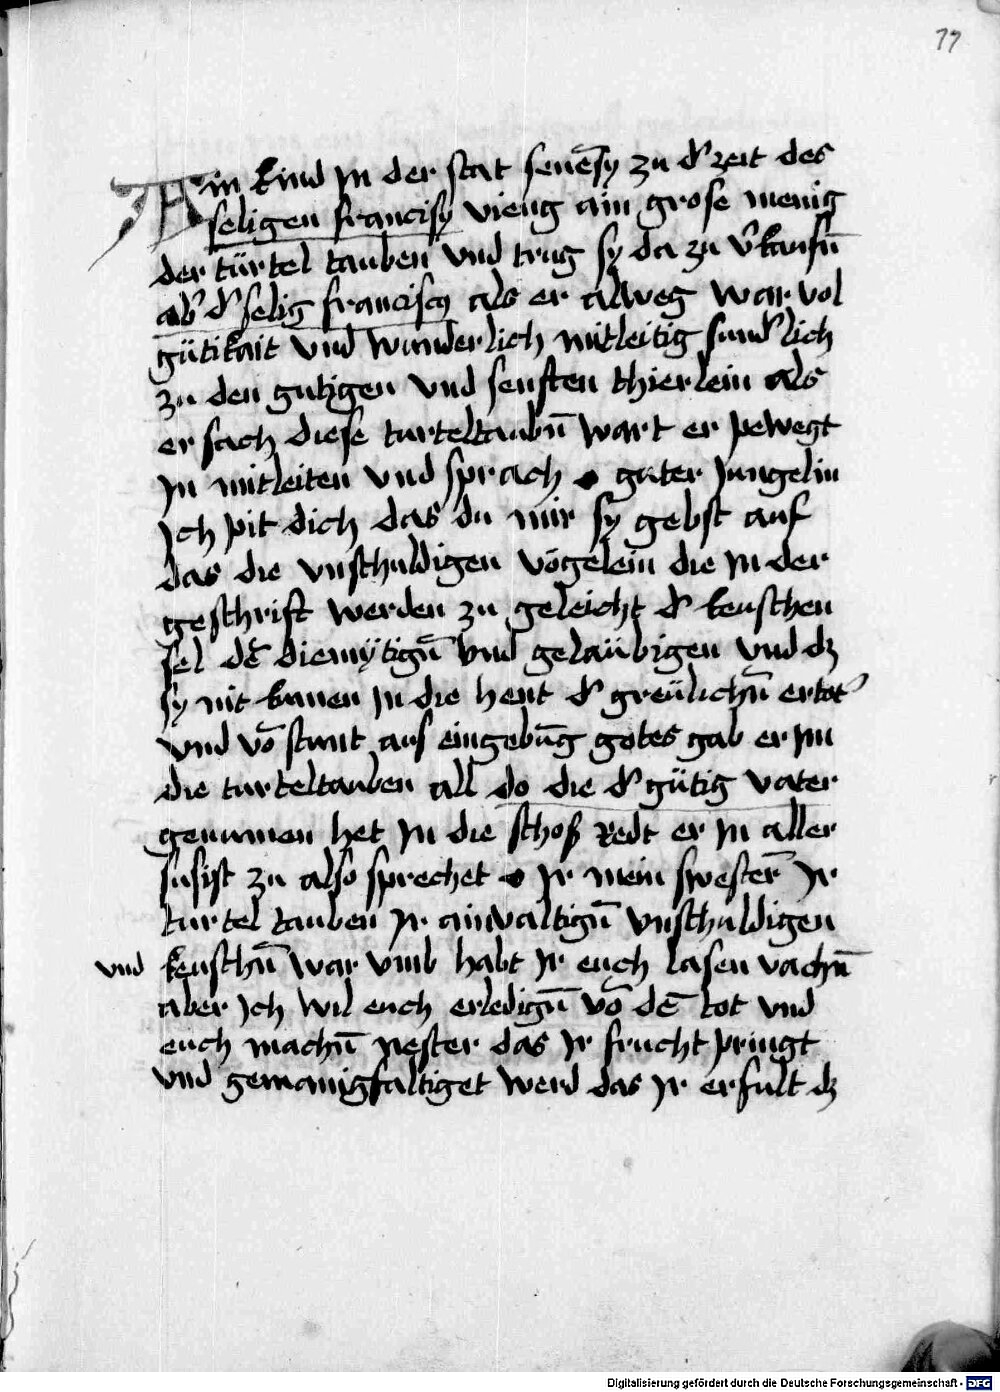 77
Ain kind Jn der stat senēsy zu d' zeit des
seligen francisy vieng ain grose menig
der türtel tauben vnd trug sy da zu v'kaufn̄
ab' d' selig franciscꝫ als er alweg war vol
gütikait vnd wunderlich mitleitig sund'lich
zu den gutigen vnd senften thierlein als
er sach diese turteltaubn̄ wart er pewegt
Jn mitleiten vnd sprach o guter Jungelin
Jch pit dich das du mir sy gebst auf
das die vnschuldigen vögelein die Jn der
geschrift werden zu geleicht d' keuschen
sel dē diemÿtign̄ vnd geläubigen vnd dz
sy nit kumen Jn die hent d' greülichn̄ ertot'
vnd vō stunt auf eingebūg gotes gab er Jm
die turteltauben all do die d' gütig vater
genumen het Jn die schoß redt er Jn aller
susist zu also sprechet o Jr mein swester̄ Jr
turtel tauben Jr ainvaltign̄ vnschuldigen
vnd keuschn̄ war vmb habt Jr euch lasen vachn̄
aber Jch wil euch erledign̄ vō dē tot vnd
euch machn̄ nester das Jr frucht pringt
vnd gemanigfaltiget werd das Jr erfult dz
Digitalisierung gefördert durch die Deutsche Forschungsgemeinschaft - DFG